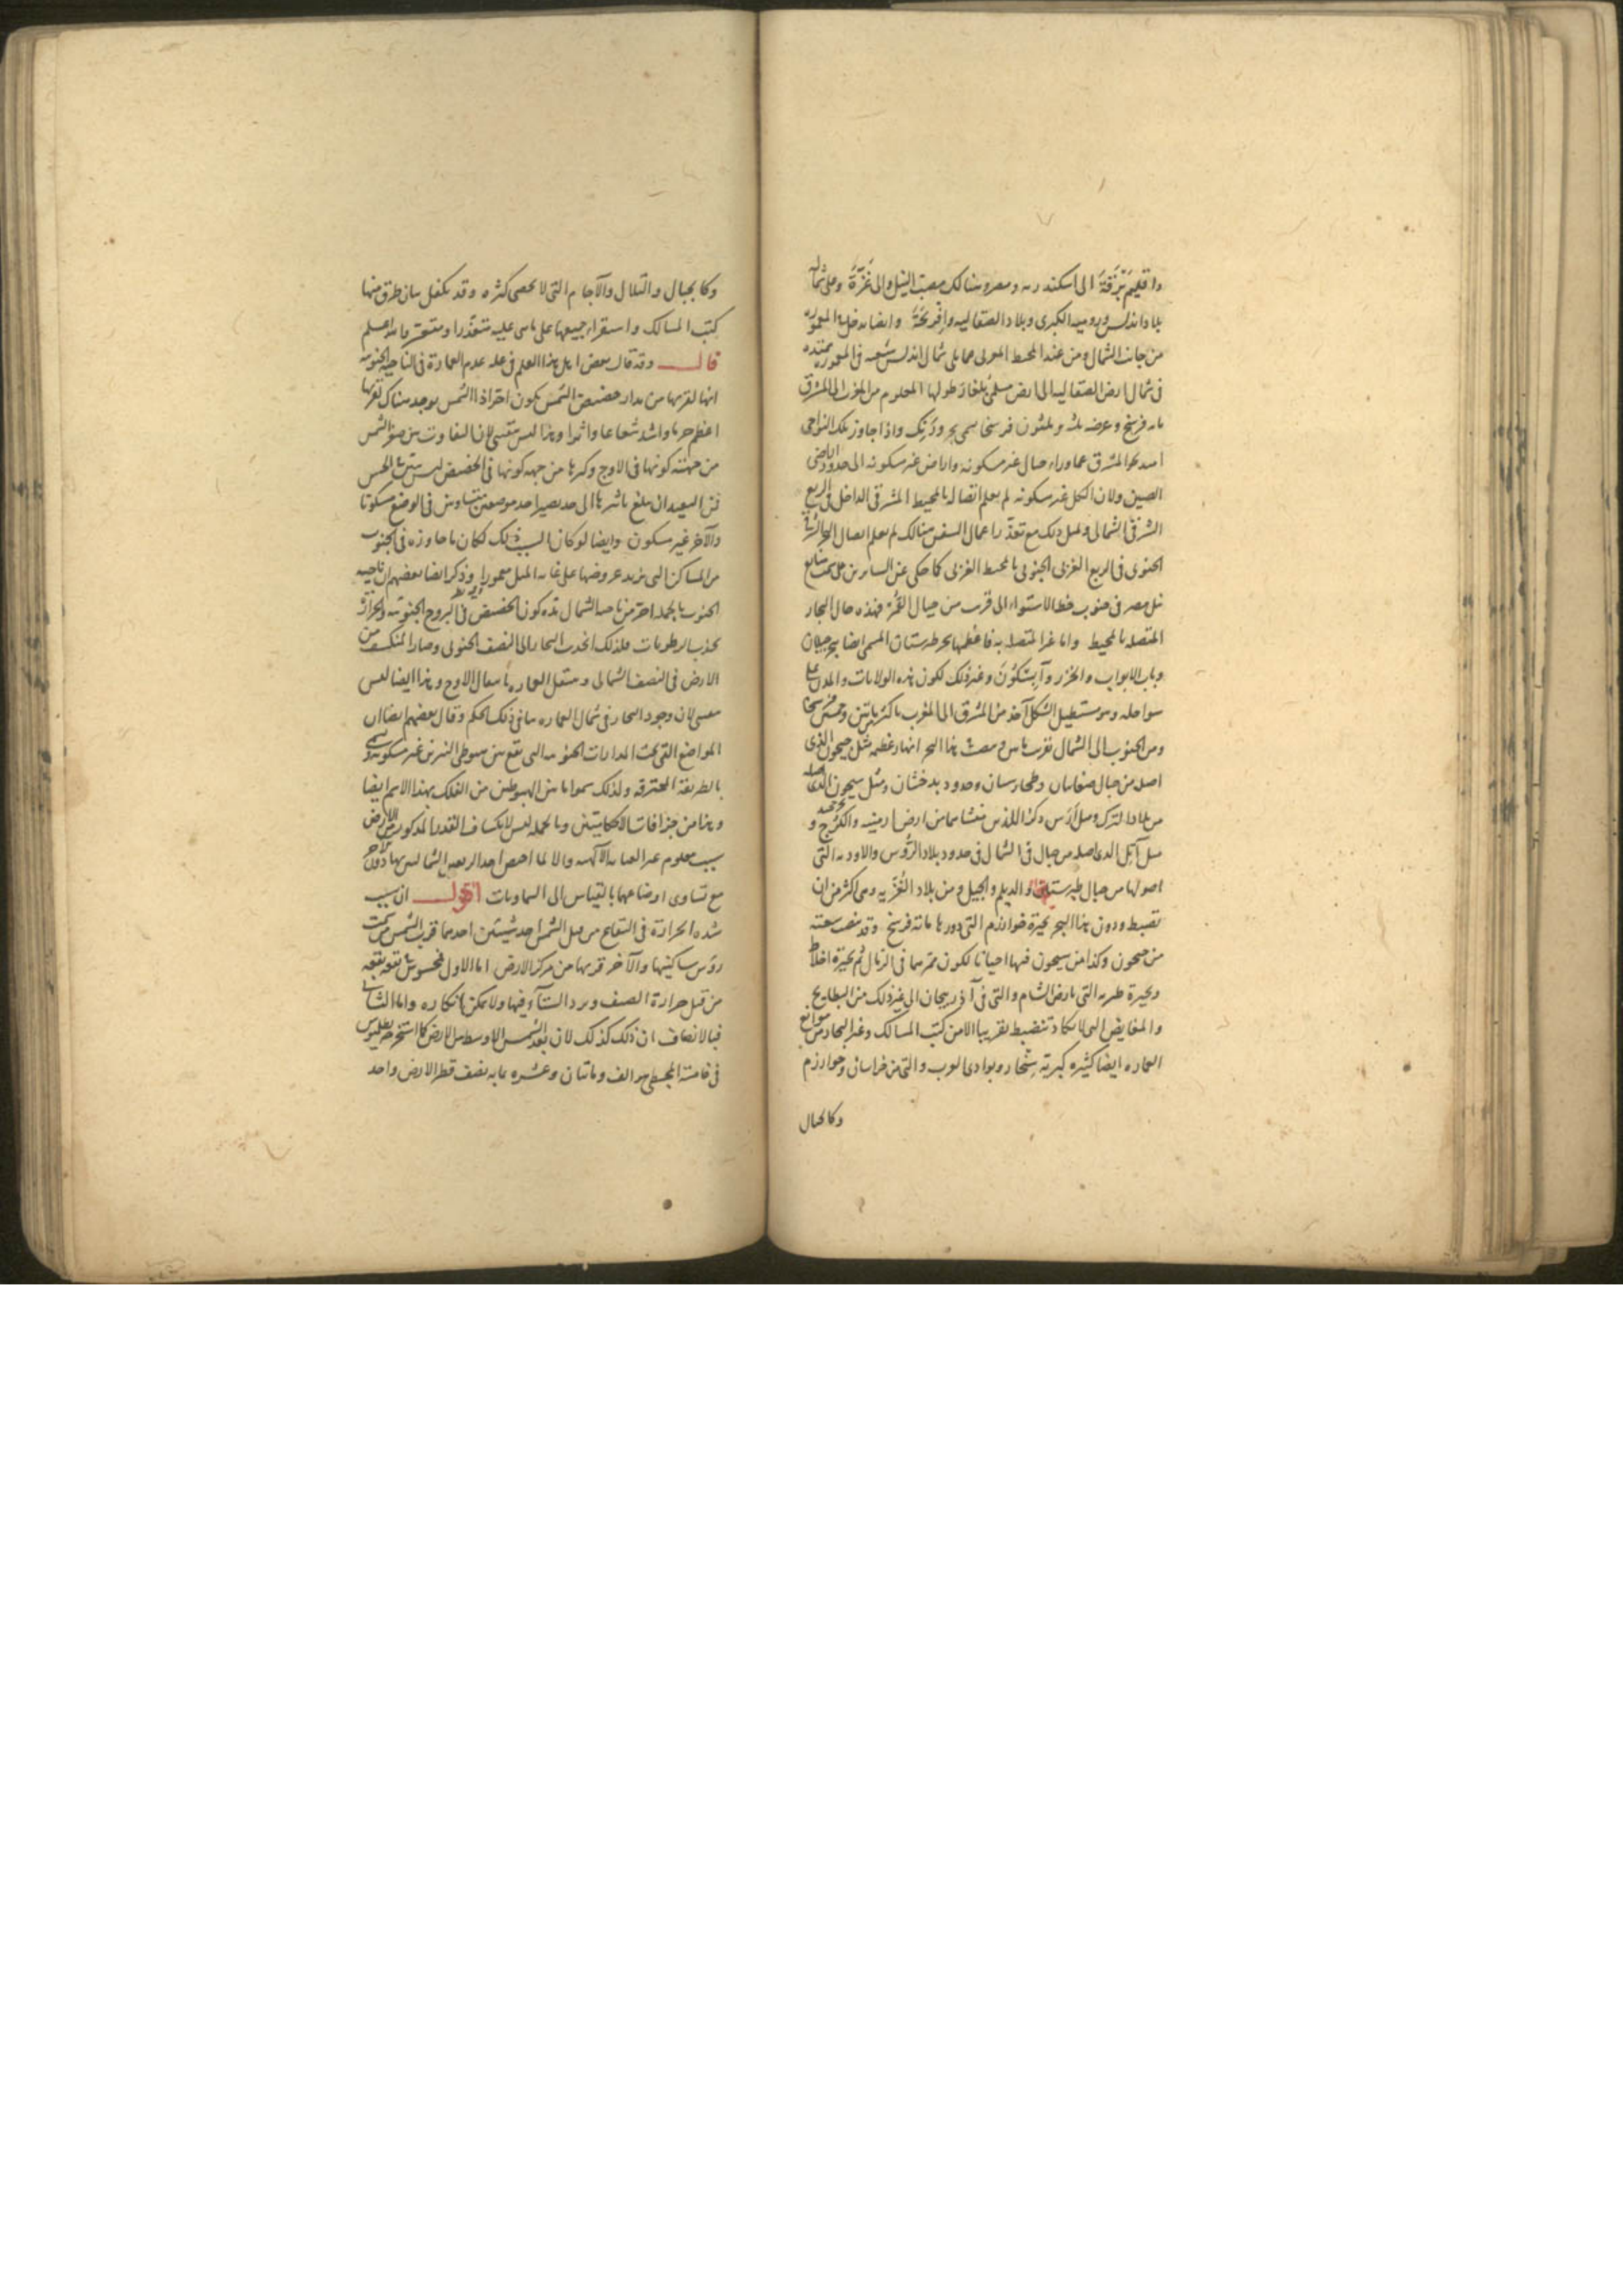 واقليم بَرْقَةَ الى اسكندريه ومصر وهنالك مصب النيل والى غَزَّةَ وعلى شماله
بلاد اندلس وروميه الكبرى وبلاد الصقاليه وافرنجَةَ وايضا يدخل المعموره
من جانب الشمال ومن عند المحيط الغربى مما يلى شمال اندلس شعبه فى المعموره ممتده
فى شمال ارض الصقاليه الى ارض مسلمى بلغار طولها المعلوم من المغرب الى المشرق
مايه فرسخ وعرضه ثلثه وثلثون فرسخا يسمى بحر ورَنْك واذا جاوز تلك النواحى
امتد نحو المشرق عما وراء جبال غير مسكونه واراض غير مسكونه الى حدود اراضى
الصين ولان الكل غير مسكونه لم يعلم اتصاله بالمحيط المشرقى الداخل فى الربع
الشرقى الشمالى ولمثل ذلك مع تعذّر اعمال السفن هنالك لم يعلم اتصال البحر الشرقى
الجنوبى فى الربع الغربى الجنوبى بالمحيط الغربى كما حكى عن السايرين على سمت منابع
نيل مصر فى جنوب خط الاستواء الى قرب من جبال القُمْر فهذه حال البحار
المتصله بالمحيط واما غير المتصله به فاعظمها بحر طبرستان المسمى ايضا ببحر جيلان
وباب الابواب والخزر وآبسكون وغير ذلك لكون هذه الولايات والمدن على
سواحله وهو مستطيل الشكل آخذ من المشرق الى المغرب باكثر من مايتين وخمسين فرسخا
ومن الجنوب الى الشمال بقرب مايتين ومصب هذا البحر انهار عظيمه مثل جيحون الذى
اصله من جبال صغانيان وطخارستان وحدود بدخشان ومثل سيحون الذى اصله
من بلاد الترك ومثل اَرَس وكر اللذين منشاءهما من ارض ارمينيه والكُرج و
مثل آتِل الذى اصله من جبال فى الشمال فى حدود بلاد الرُّوس والاوديه التى
اصولها من جبال طبرستان والديلم والجيل ومن بلاد الغُزّيه وهى اكثر من ان
تضبط ودون هذا البحر بحيرة خوارزم التى دورها مائة فرسخ وقد ينصب سعته
من جيحون وكذا من سيحون فيها احيانا لكون ممرهما فى الرمال ثم بحيرة اخلاط
وبحيرة طبريه التى بارض الشام والتى فى آذربيجان الى غير ذلك من البطايح
والمغايض التى لا تكاد تنضبط تقريبا الا من كتب المسالك وغير البحار من موانع
العماره ايضا كثيره كبريّة سنجار وبوادى العرب والتى من خراسان وخوارزم
وكالجبال
وكالجبال والتلال والآجام التى لا تحصى كثره وقد تكفل ببيان طرق منها
كتب المسالك واستقراء جميعها على ما هى عليه متعذّر او متعسّر والله اعلم
قال وقد قال بعض اهل هذا العلم فى علة عدم العمارة فى الناحيه الجنوبيه
انها لقربها من مدار حضيض الشمس يكون احترازا الشمس يوجد هناك لقربها
اعظم حرما واشد شعاعا واثرا وهذا ليس بمقتضى لان التفاوت بين صغر الشمس
من جهته كونها فى الاوج وكبرها من جهه كونها فى الحضيض ليس يتبين بالحس
فمن البعيد ان يبلغ تاثيرها الى حد يصير احد موضعين متساويين فى الوضع مسكونا
والآخر غير مسكون وايضا لو كان السبب ذلك لكان ما جاوزه فى الجنوب
من المساكن التى يزيد عروضها على غايه الميل معمورا وذكر ايضا بعضهم ان ناحيه
الجنوب بالجمله احر من ناحيه الشمال لشده كون الحضيض فى البروج الجنوبيه والحرارة
تجذب الرطوبات فلذلك انجذبت البحار الى النصف الجنوبى وصار المنكشف من
الارض فى النصف الشمالى وينتقل العماره بانتقال الاوج وهذا ايضا ليس
بمقتضى لان وجود البحار فى شمال العماره ينافى ذلك الحكم وقال بعضهم ايضا ان
المواضع التى تحت المدارات الجنوبيه التى تقع بين هبوطى النيرين غير مسكونه وتسمى
بالطريقة المحترقه ولذلك سموا ما بين الهبوطين من الفلك بهذا الاسم ايضا
وهذا من جزافات الاحكاميّين وبالجمله ليس لانكشاف القدر المذكور من الارض
سبب معلوم غير العنايه الآلهيه والا لما اختص احد الربعين الشماليين بها دون الآخر
مع تساوى اوضاعهما بالقياس الى السماويات اقول ان سبب
شده الحرارة فى البقاع من قبل الشمس احد شيئين احدهما قرب الشمس من سمت
رؤس ساكنيها والآخر قربها من مركز الارض اما الاول فمحسوس بالتجربة بقوته
من قبل حرارة الصيف وبرد الشتآء فيها ولا يمكن انكاره واما الثانى
فبالانصاف ان ذلك كذلك لان بعد الشمس الاوسط من الارض كما استخرجه بطلميوس
فى خامسة المجسطى هو الف ومائتان وعشره بما به نصف قطر الارض واحد